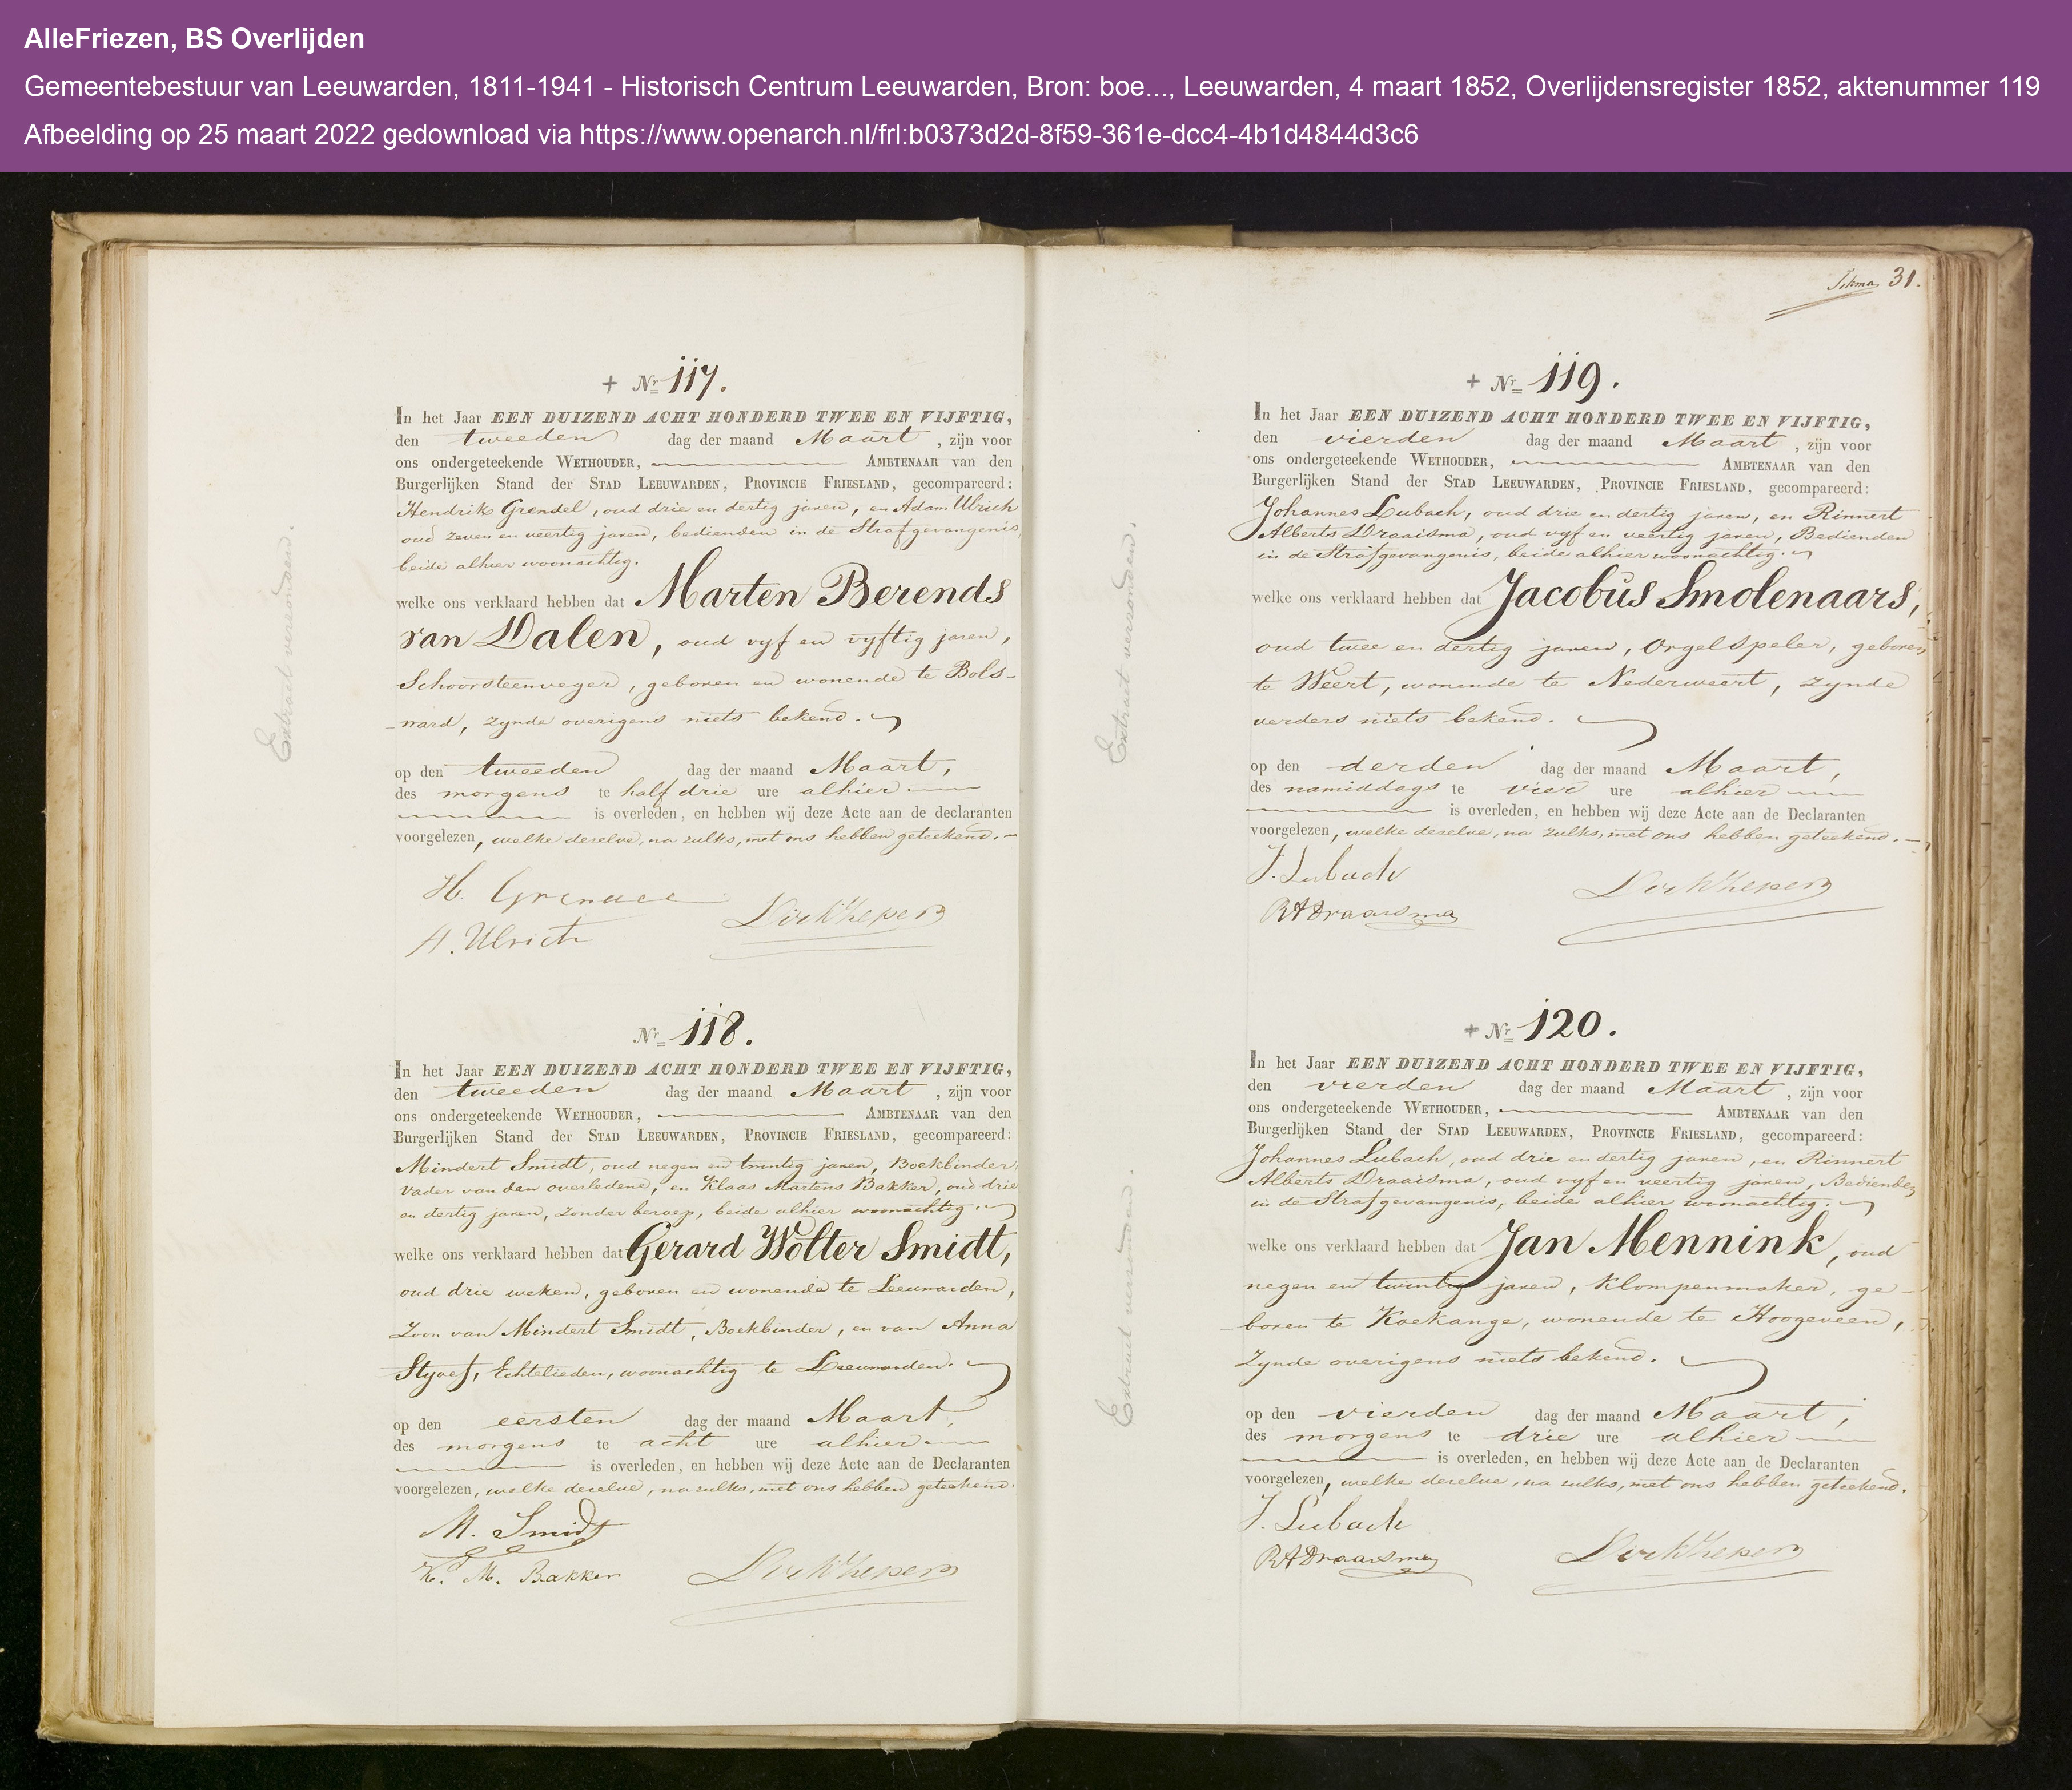 AlleFriezen, BS Overlijden
Gemeentebestuur van Leeuwarden, 1811-1941 - Historisch Centrum Leeuwarden, Bron: boe..., Leeuwarden, 4 maart 1852, Overlijdensregister 1852, aktenummer 119
Afbeelding op 25 maart 2022 gedownload via https://www.openarch.nl/frl:b0373d2d-8f59-361e-dcc4-4b1d4844d3c6
+ Nr. 117.
In het Jaar EEN DUIZEND ACHT HONDERD TWEE EN VIJFTIG,
den tweeden dag der maand Maart, zijn voor
ons ondergeteekende WETHOUDER, AMBTENAAR van den
Burgerlijken Stand der STAD LEEUWARDEN, PROVINCIE FRIESLAND, gecompareerd:
Hendrik Grendel, oud drie en dertig jaren, en Adam Ulrich
oud zeven en veertig jaren, bedienden in de Strafgevangenis,
beide alhier woonachtig.
welke ons verklaard hebben dat Marten Berends
van Dalen, oud vyf en vyftig jaren,
Schoorsteenveger, geboren en wonende te Bols-
-ward, zynde overigens niets bekend.
op den tweeden dag der maand Maart,
des morgens te half drie ure alhier
is overleden, en hebben wij deze Acte aan de declaranten
voorgelezen, welke dezelve, na zulks, met ons hebben geteekend.
Extract verzonden.
H. Grendel
A. Ulrich
Nr. 118.
In het Jaar EEN DUIZEND ACHT HONDERD TWEE EN VIJFTIG,
den tweeden dag der maand Maart, zijn voor
ons ondergeteekende WETHOUDER, AMBTENAAR van den
Burgerlijken Stand der STAD LEEUWARDEN, PROVINCIE FRIESLAND, gecompareerd:
Mindert Smidt, oud negen en twintig jaren, Boekbinder,
Vader van den overledene, en Klaas Martens Bakker, oud drie
en dertig jaren, zonder beroep, beide alhier woonachtig.
welke ons verklaard hebben dat Gerard Wolter Smidt,
oud drie weken, geboren en wonende te Leeuwarden,
Zoon van Mindert Smidt, Boekbinder, en van Anna
Echtelieden, woonachtig te Leeuwarden.
op den eersten dag der maand Maart,
des morgens te acht ure alhier
is overleden, en hebben wij deze Acte aan de Declaranten
voorgelezen, welke dezelve, na zulks, met ons hebben geteekend.
M. Smidt
K. M. Bakker
31.
+ Nr. 119.
In het Jaar EEN DUIZEND ACHT HONDERD TWEE EN VIJFTIG,
den vierden dag der maand Maart, zijn voor
ons ondergeteekende WETHOUDER, AMBTENAAR van den
Burgerlijken Stand der STAD LEEUWARDEN, PROVINCIE FRIESLAND, gecompareerd:
Johannes Lubach, oud drie en dertig jaren, en Rinnert
Alberts Draaisma, oud vyf en veertig jaren, Bedienden
in de Strafgevangenis, beide alhier woonachtig.
welke ons verklaard hebben dat Jacobus Smolenaars,
oud twee en dertig jaren, Orgelspeler, geboren
te Weert, wonende te Nederweert, zynde
verders niets bekend.
op den derden dag der maand Maart,
des namiddags te vier ure alhier
is overleden, en hebben wij deze Acte aan de Declaranten
voorgelezen, welke dezelve, na zulks, met ons hebben geteekend.
Extract verzonden.
J. Lubach
RADraaisma
+ Nr. 120.
In het Jaar EEN DUIZEND ACHT HONDERD TWEE EN VIJFTIG,
den vierden dag der maand Maart, zijn voor
ons ondergeteekende WETHOUDER, AMBTENAAR van den
Burgerlijken Stand der STAD LEEUWARDEN, PROVINCIE FRIESLAND, gecompareerd:
Johannes Lubach, oud drie en dertig jaren, en Rinnert
Alberts Draaisma, oud vyf en veertig jaren, Bedienden
in de Strafgevangenis, beide alhier woonachtig.
welke ons verklaard hebben dat Jan Mennink, oud
negen en twintig jaren, Klompenmaker, ge-
boren te Koekange, wonende te Hoogeveen,
zynde overigens niets bekend.
op den vierden dag der maand Maart,
des morgens te drie ure alhier
is overleden, en hebben wij deze Acte aan de Declaranten
voorgelezen, welke dezelve, na zulks, met ons hebben geteekend.
Extract verzonden.
J. Lubach
RADraaisma